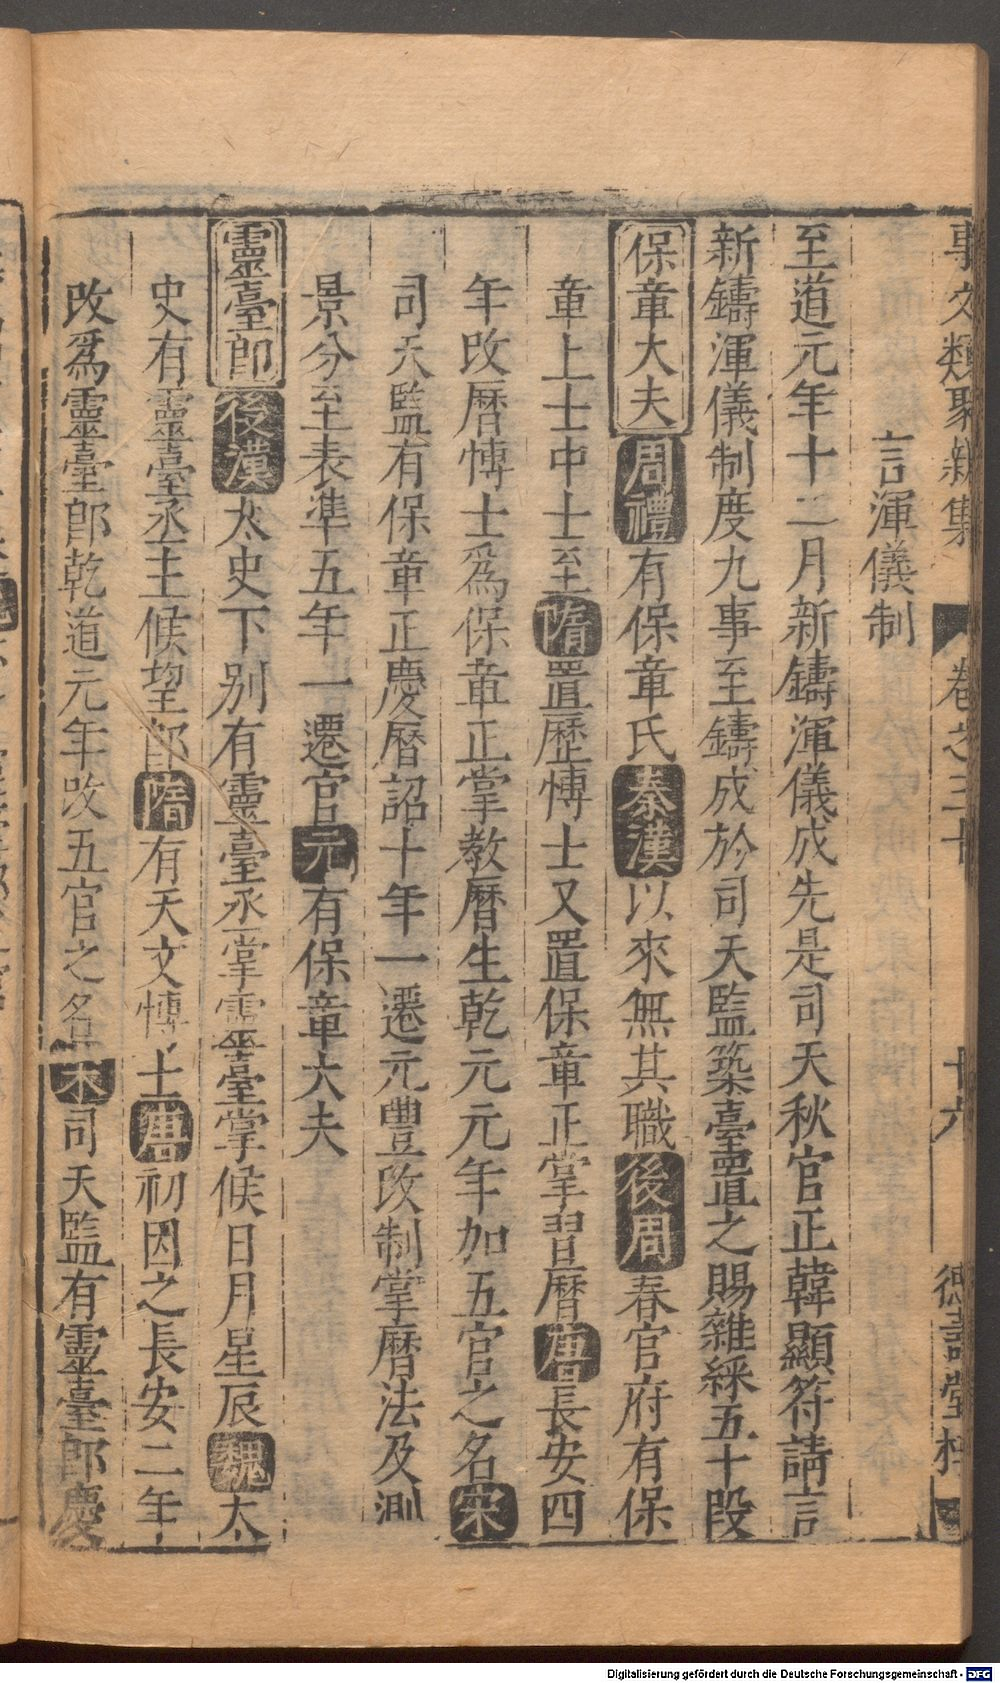 事文類聚新集 卷之三十 十六 德壽堂梓
言渾儀制
至道元年十二月新鑄渾儀成先是司天秋官正韓顯符請言
新鑄渾儀制度九事至鑄成於司天監築臺置之賜雜綵五十段
保章大夫 周禮有保章氏秦漢以來無其職後周春官府有保
章上士中士至隋置歷愽士又置保章正掌習曆唐長安四
年改曆愽士爲保章正掌教曆生乾元元年加五官之名宋
司天監有保章正慶曆詔十年一遷元豊改制掌曆法及測
景分至表準五年一遷官元有保章大夫
靈臺郎 後漢太史下别有靈臺丞掌靈臺掌候日月星辰魏太
史有靈臺丞主候望郎隋有天文愽士唐初因之長安二年
改爲靈臺郎乾道元年改五官之名宋司天監有靈臺郎慶
Digitalisierung gefördert durch die Deutsche Forschungsgemeinschaft - DFG